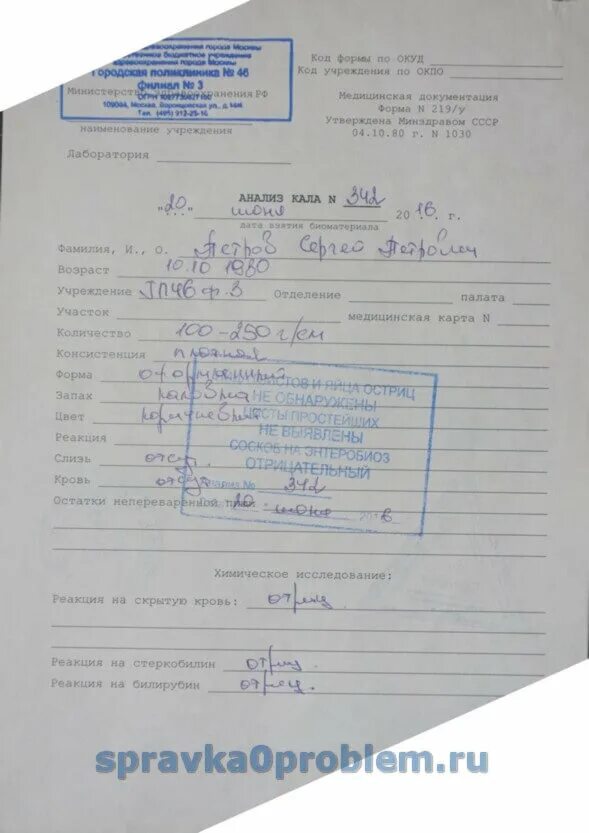 здравоохранения города Москвы
бюджетное учреждение
здравоохранения города Москвы
Городская поликлиника № 46
Филиал № 3
Министерство здравоохранения РФ
109044, Москва, Воронцовская ул.,
Тел. (495) 912-25-16
наименование учреждения
Лаборатория
Код формы по ОКУД
Код учреждения по ОКПО
Медицинская документация
Форма N 219/у
Утверждена Минздравом СССР
04.10.80 г. N 1030
АНАЛИЗ КАЛА N 342
"20" июня 2016. г.
дата взятия биоматериала
Фамилия, И., о. Петров Сергей Петрович
Возраст 10.10 1980
Учреждение ГП46 ф. 3 Отделение палата
Участок медицинская карта N
Количество 100-250 г/см
Консистенция плотная
Форма оформленный
Запах каловый
Цвет коричневый
Реакция
Слизь отсут.
Кровь отсут
Остатки непереваренной пищи
И ЯЙЦА ОСТРИЦ
НЕ ОБНАРУЖЕНЫ
ЦИСТЫ ПРОСТЕЙШИХ
НЕ ВЫЯВЛЕНЫ
СОСКОБ НА ЭНТЕРОБИОЗ
ОТРИЦАТЕЛЬНЫЙ
№ 342
20 июня 2016
Химическое исследование:
Реакция на скрытую кровь: отриц
Реакция на стеркобилин отриц
Реакция на билирубин отриц.
spravka0problem.ru